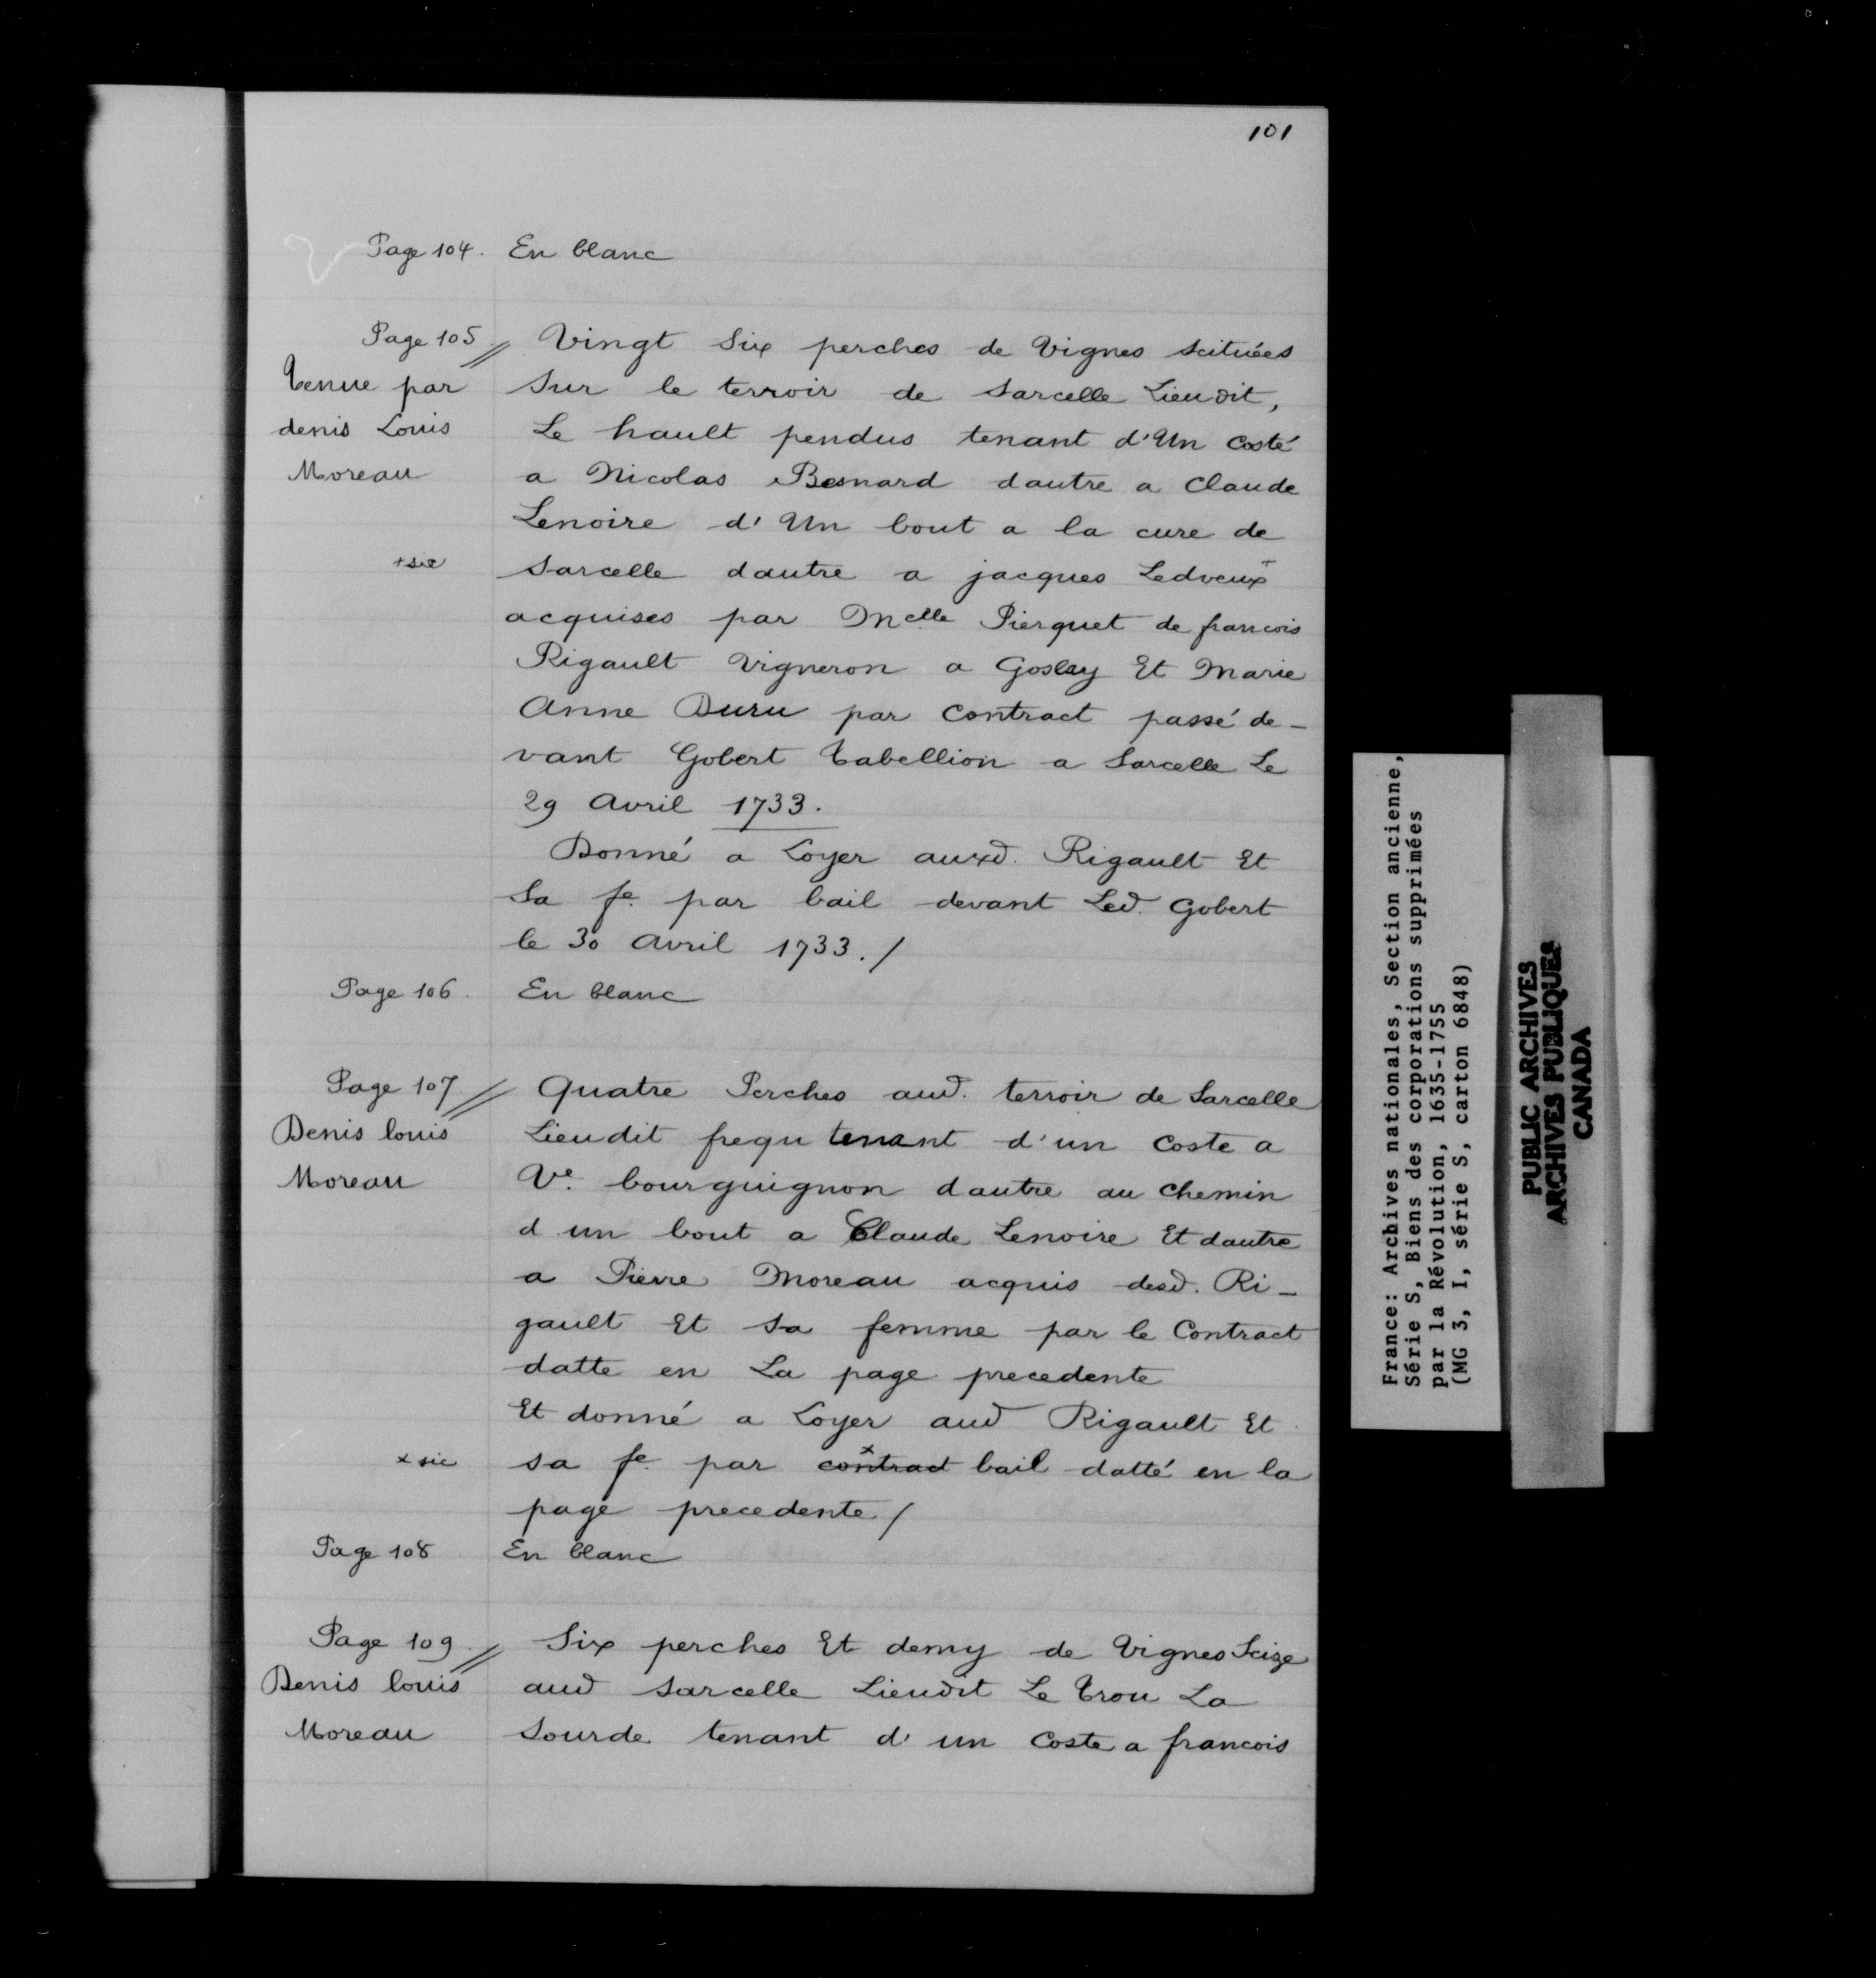 101
Page 104. En blanc
Page 105 // Vingt Six perches de Vignes scituées
Tenue par Sur le terroir de Sarcelle Lieudit,
denis Louis Le hault pendus tenant d'Un costé
Moreau a Nicolas Besnard dautre a Claude
Lenoire d'Un bout a la cure de
+sic Sarcelle dautre a jacques Ledveux+
acquises par Melle Pierquet de francois
Rigault Vigneron a Goslay Et Marie
Anne Duru par Contract passé de-
vant Gobert Tabellion a Sarcelle Le
29 Avril 1733.
Donné a Loyer auxd. Rigault Et
Sa fe. par bail devant Led. Gobert
le 30 Avril 1733./
Page 106. En blanc
Page 107 // Quatre Perches aud. terroir de Sarcelle
Denis louis Lieudit frequ tenant d'un coste a
Moreau Ve. bourguignon dautre au Chemin
d un bout a Claude Lenoire Et dautre
a Pierre Moreau acquis desd. Ri-
gault Et sa femme par le Contract
datte en La page precedente
Et donné a Loyer aud Rigault Et
x sic sa fe. par contract x bail datté en la
page precedente /
Page 108 En blanc
Page 109. // Six perches Et demy de Vignes Scize
Denis louis aud Sarcelle Lieudit Le Trou La
Moreau Sourde tenant d'un Coste a francois
France: Archives nationales, Section ancienne,
Série S, Biens des corporations supprimées
par la Révolution, 1635-1755
(MG 3, I, série S, carton 6848)
PUBLIC ARCHIVES
ARCHIVES PUBLIQUES
CANADA